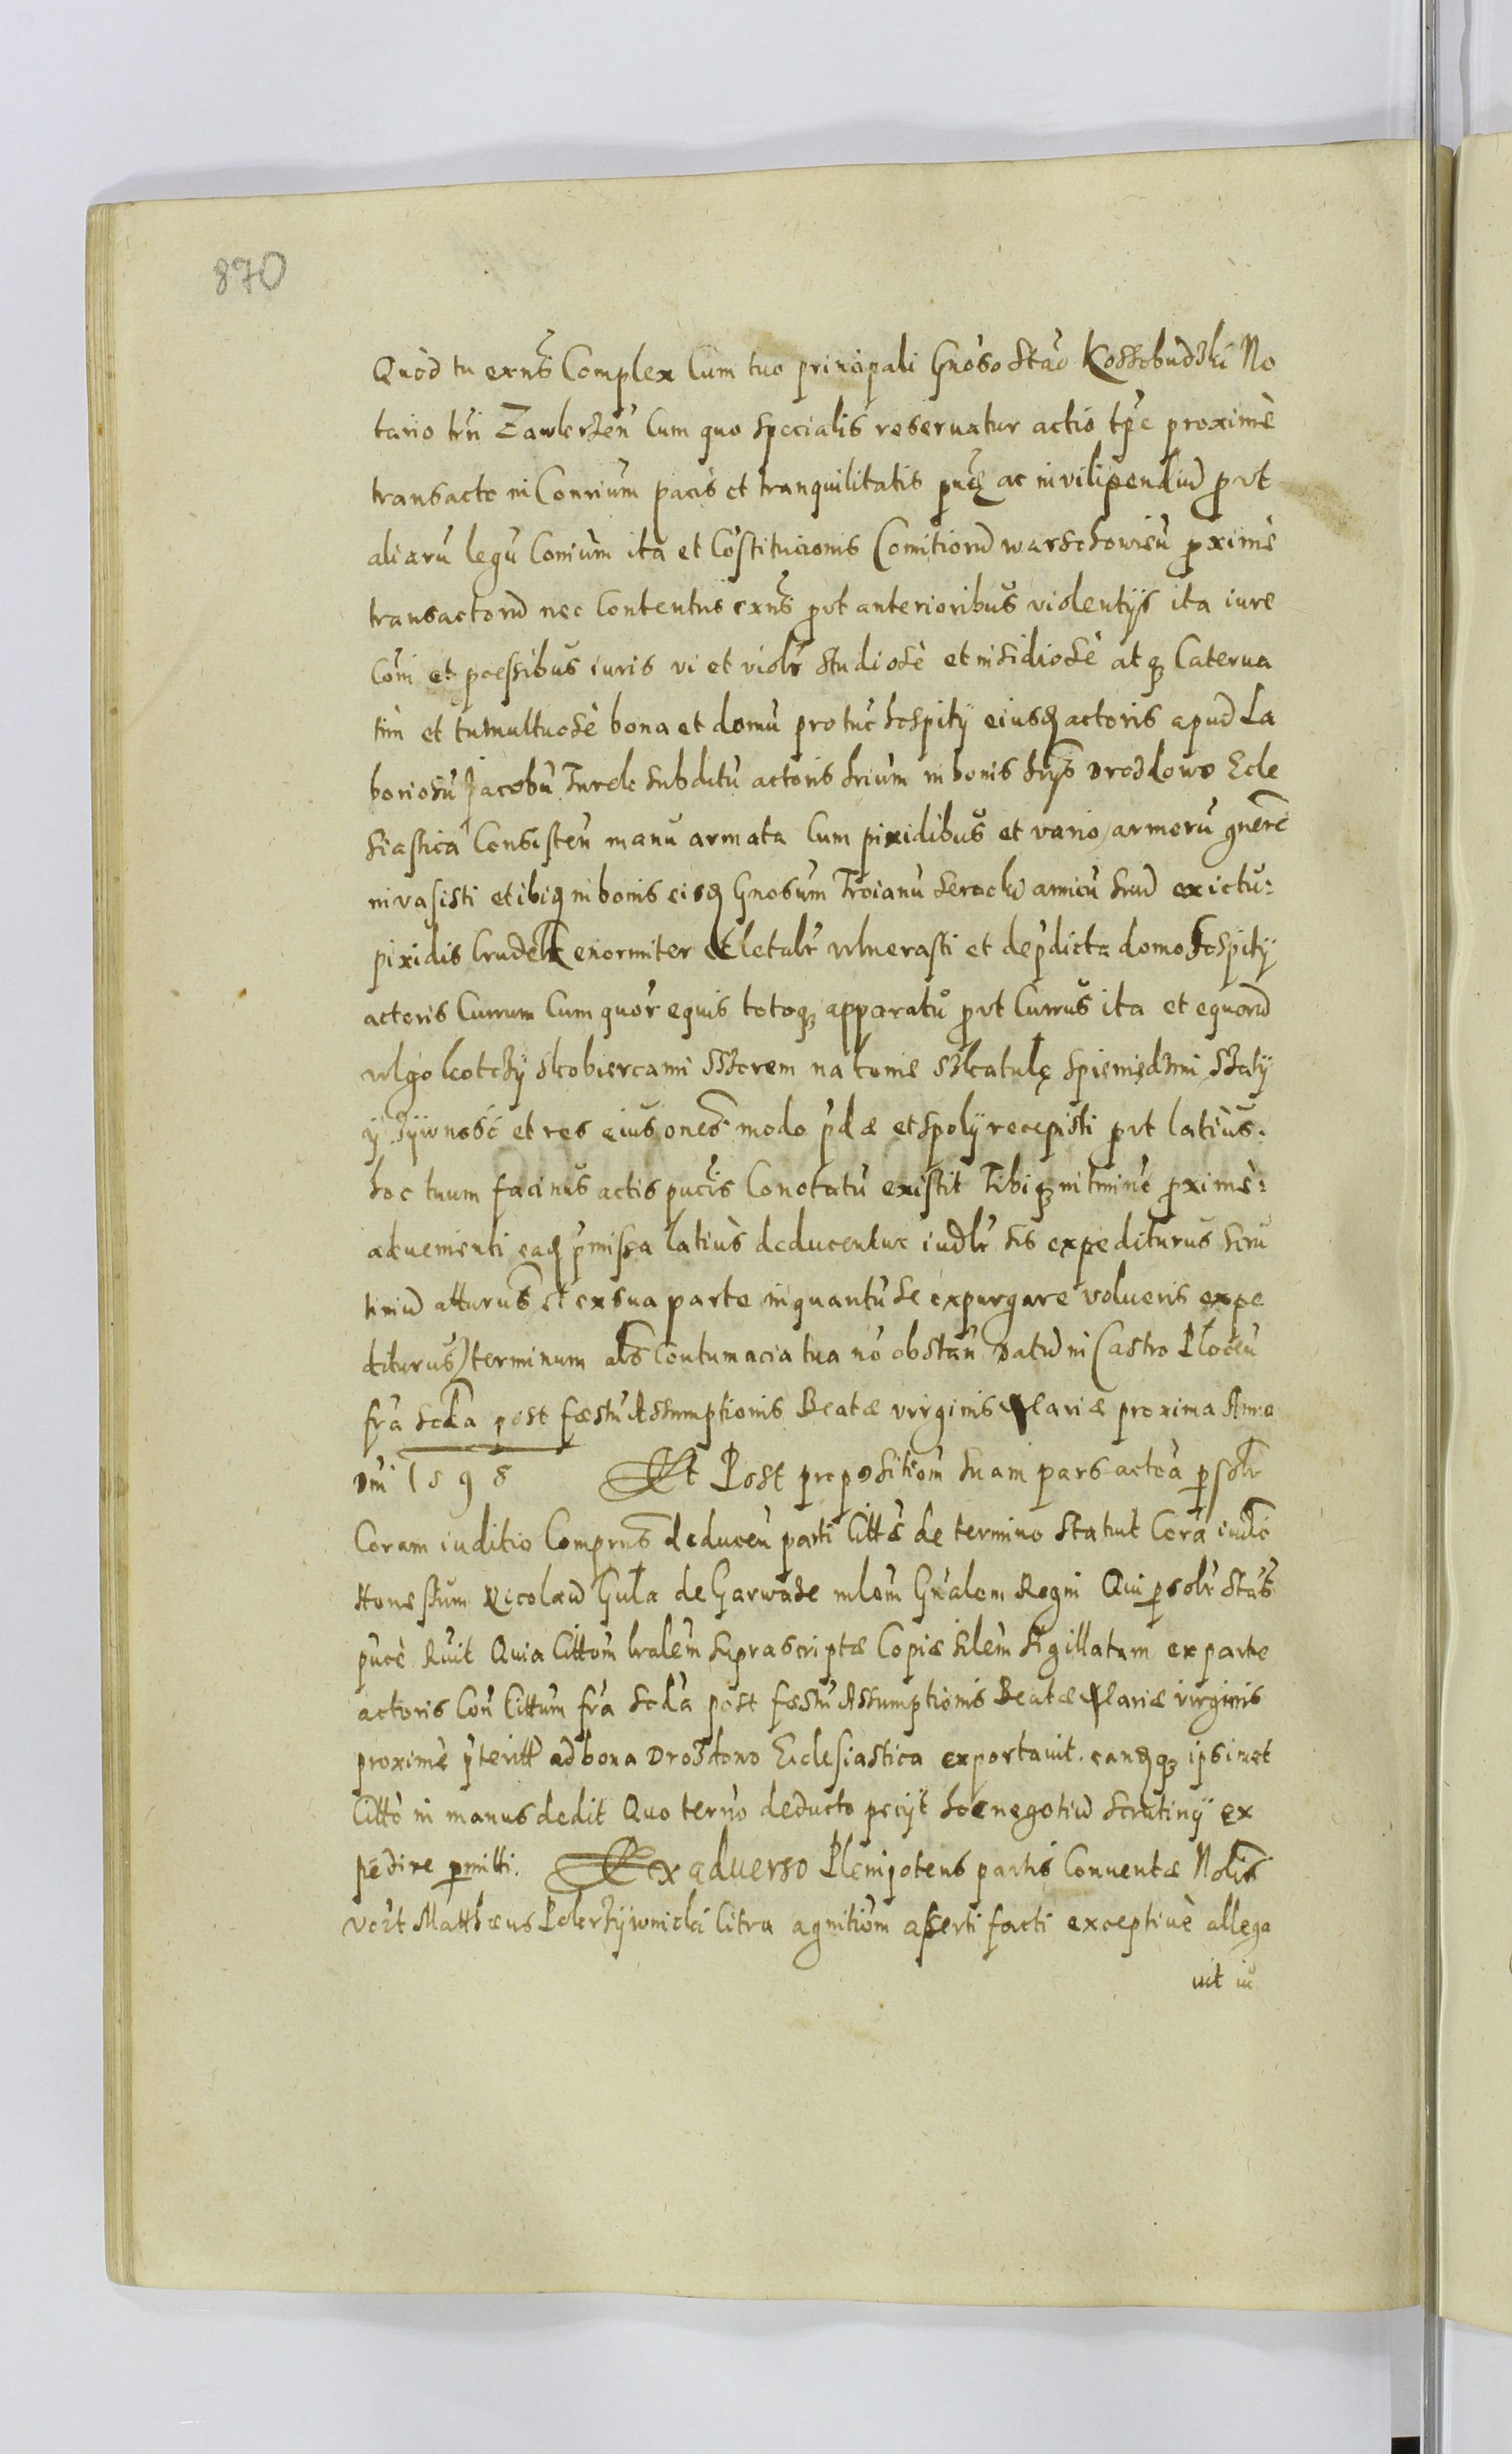 870
Quòd tu exñs Complex Cum tuo principali Gnoso Stão Kossobudzki No
tario trŕi Zawkrzeñ Cum quo specialis reseruatur actio tp̃e proximè
transacto in Conriũm pacis et tranquilitatis ac in vilipendiũ prvt
aliarũ legũ Coniũm ita et Cõstitucionis Comitiorũ warschouieñ proximè
transactorũ nec Contentus exñs prvt anterioribus violentÿs ita iure
Cõi et pcessibus iuris vi et violr studiosè et insidiosè atq3 Caterua
tim et tumultuosè bona et domũ pro tũc hospitÿ eiusq actoris apud La
boriosũ Jacobũ Turek subditũ actoris hrium in bonis hrÿs Drozdowo Ecle
siastica Consisteñ manu armata Cum pixidibus et vario armorũ gnere
invasisti et ibiq in bonis eisq Gnosum Troianũ Serocki amicũ hrud ex ictu:
pixidis Crudelr enormiter et letalr vlnerasti et de p̃dicta domo hospitÿ
actoris Currum Cum quor equis totoq3 apparatu prvt Currus ita et equorũ
vlgo kotczÿ skobiercami na konie szkatulę spieniędzmi szatÿ
ÿ zÿwnosć et res eius oñes modo p̃dæ et spolÿ recepisti prvt latiùs.
hoc tuum facinus actis Conotatũ existit Tibiq3 in tminõ proximè:
aduenienti eaq p̃missa latiùs deducentur iudlr sis expediturus scru
tiniũ atturus et ex sua parte inquantũ se expurgare volueris expe
diturus) terminum als Contumacia tua nõ obstañ Datũ in Castro Ploceñ
fr̃a scd̃a post fæstũ Assumptionis Beatæ virginis Mariæ proxima Anno
Dñi 1598 Et Post propositiõm suam pars actõa psolr
Coram iuditio Comprns deduceñ parti Cittæ de termino statuit Corã iudõ
Honestum Nicolaũ Gula de Garwacze mlem Gñalem Regni Qui psolr stãs
Rũit Quia Cittõm lralem suprascriptæ Copiæ silem sigillatam ex parte
actoris Coñ Cittum fr̃a scd̃a post fæstũ Assumptionis Beatæ Mariæ virginis
proximè p̃teritt ad bona Drozdowo Ecclesiastica exportauit. eanqq3 ipsimet
Cittõ in manus dedit Quo terño deducto pecÿt hoc negotiũ scrutinÿ ex
pedire pmitti. Ex aduerso Plenipotens partis Conuentæ Nolis
vert Matthæus Pokrzÿwnicki Citra agnitiõm aserti facti exceptiuè allega
uit iu